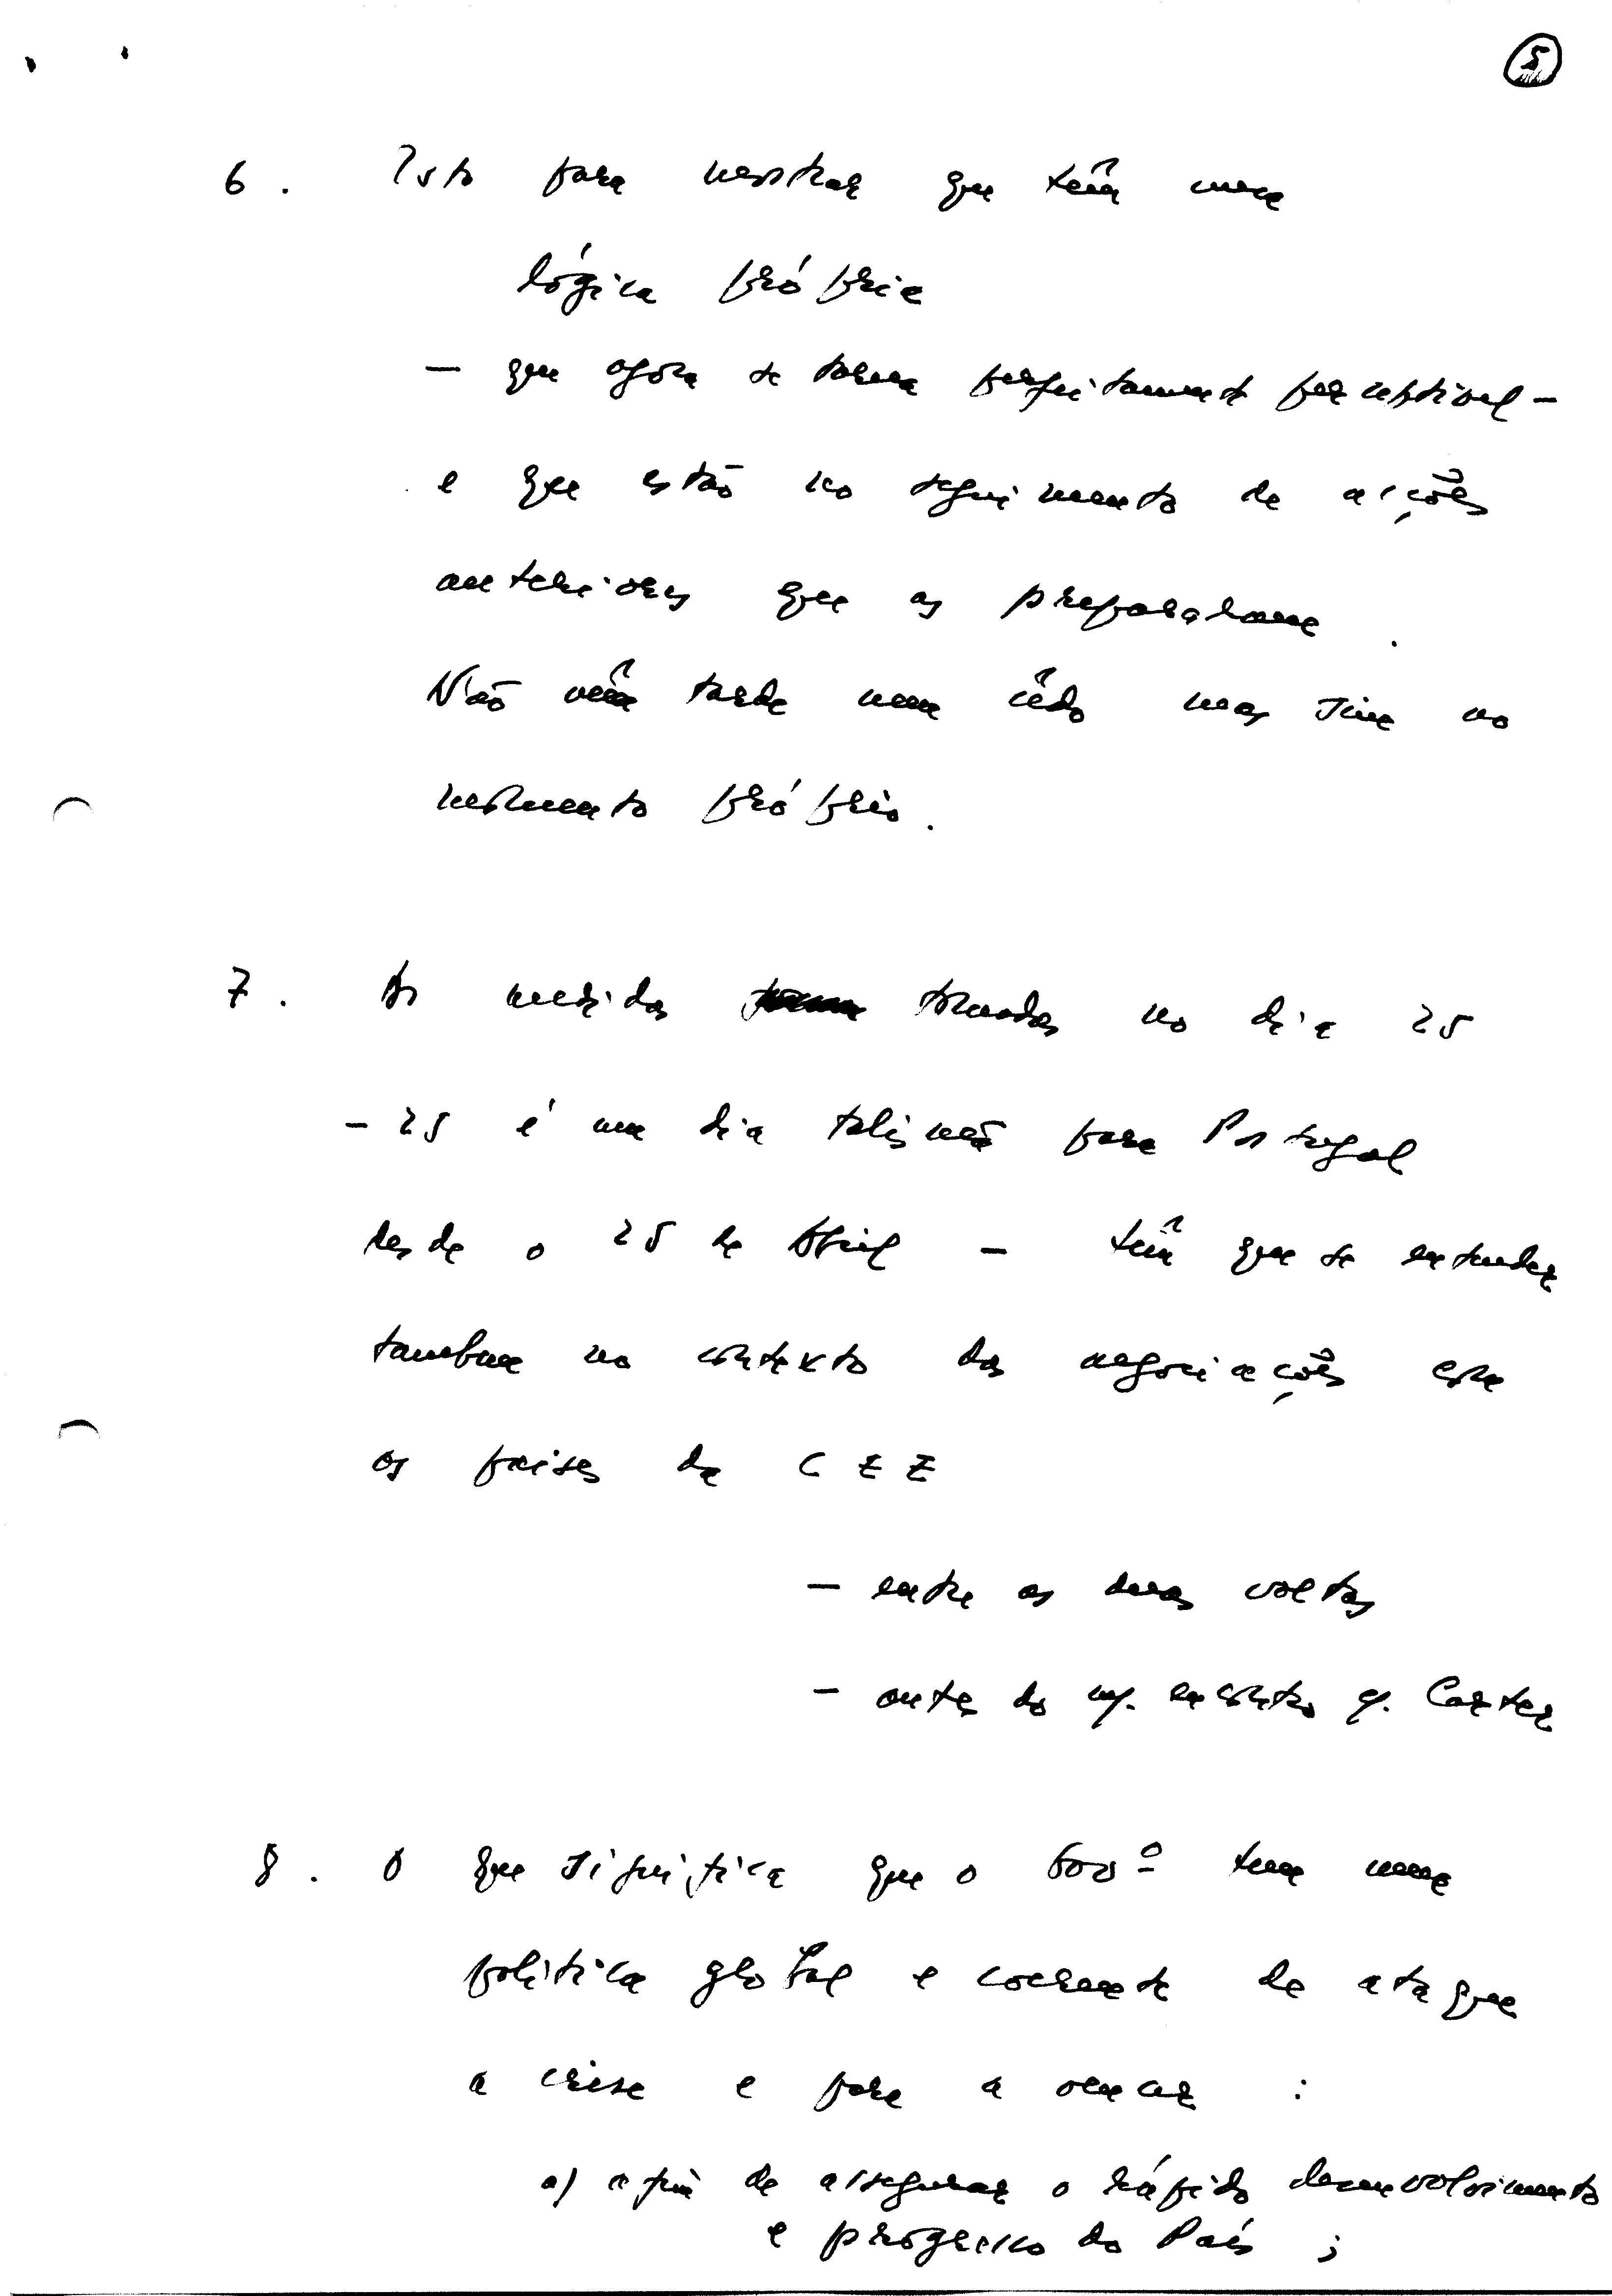 5
6. Isto para mostrar que têm uma
lógica própria
— que agora se torna perfeitamente perceptível —
e que estão no seguimento de acções
anteriores que as prepararam.
Não vêm tarde nem cêdo mas sim no
momento próprio.
7. As medidas tomadas no dia 25
— 25 é um dia talismã para Portugal
desde o 25 de Abril — têm que se entender
tambem no contexto das negociações com
os paises da CEE
— entre as duas voltas
— antes do m/. encontro c/. Carter
8. O que significa que o Gov.º tem uma
politica global e coerente de ataque
a crise e para a vencer :
a) a fim de assegurar o rápido desenvolvimento
e progresso do País ;